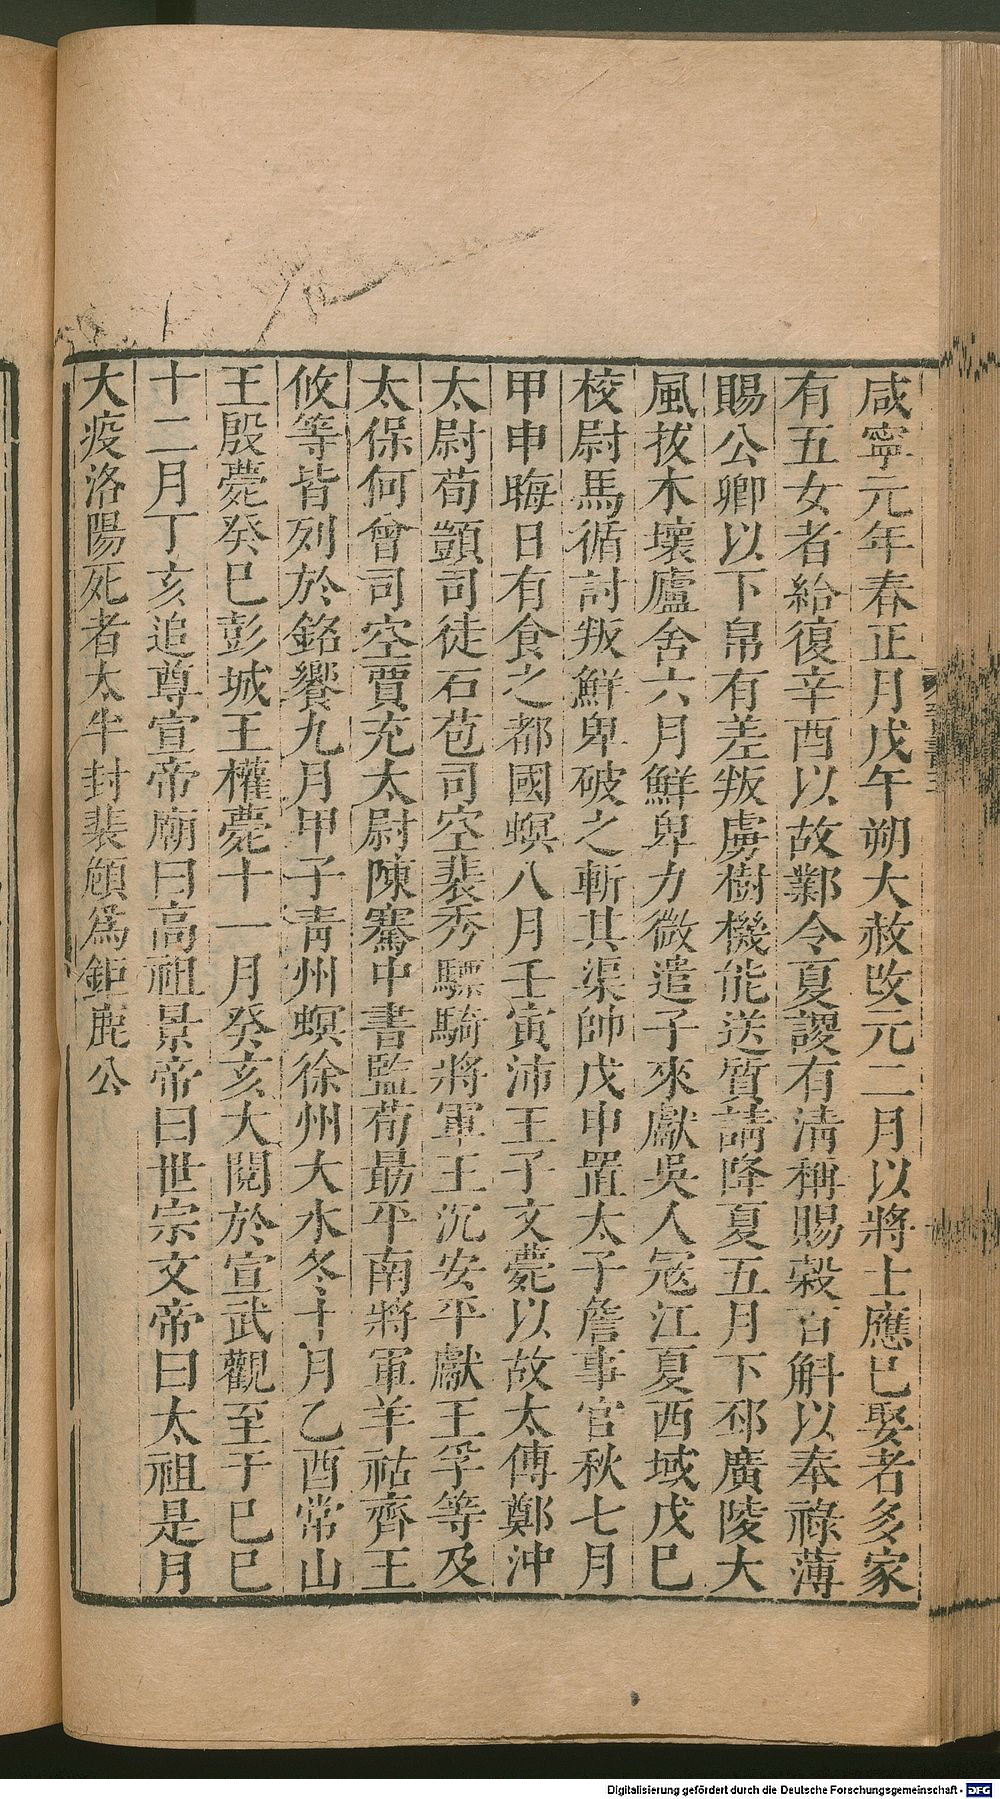 咸寧元年春正月戊午朔大赦改元二月以將士應已娶者多家
有五女者給復辛酉以故鄴令夏謖有清稱賜穀百斛以奉祿薄
賜公卿以下帛有差叛虜樹機能送質請降夏五月下邳廣陵大
風拔木壞廬舍六月鮮卑力微遣子來獻吳人冦江夏西域戊巳
校尉馬循討叛鮮卑破之斬其渠帥戊申置太子詹事官秋七月
甲申晦日有食之都國螟八月壬寅沛王子文薨以故太傅鄭沖
太尉荀顗司徒石苞司空裴秀驃騎將軍王沉安平獻王孚等及
太保何曾司空賈充太尉陳騫中書監荀勗平南將軍羊祜齊王
攸等皆列於銘饗九月甲子青州螟徐州大水冬十月乙酉常山
王殷薨癸巳彭城王權薨十一月癸亥大閱於宣武觀至于巳巳
十二月丁亥追尊宣帝廟曰高祖景帝曰世宗文帝曰太祖是月
大疫洛陽死者太半封裴頠爲鉅鹿公
Digitalisierung gefördert durch die Deutsche Forschungsgemeinschaft - DFG